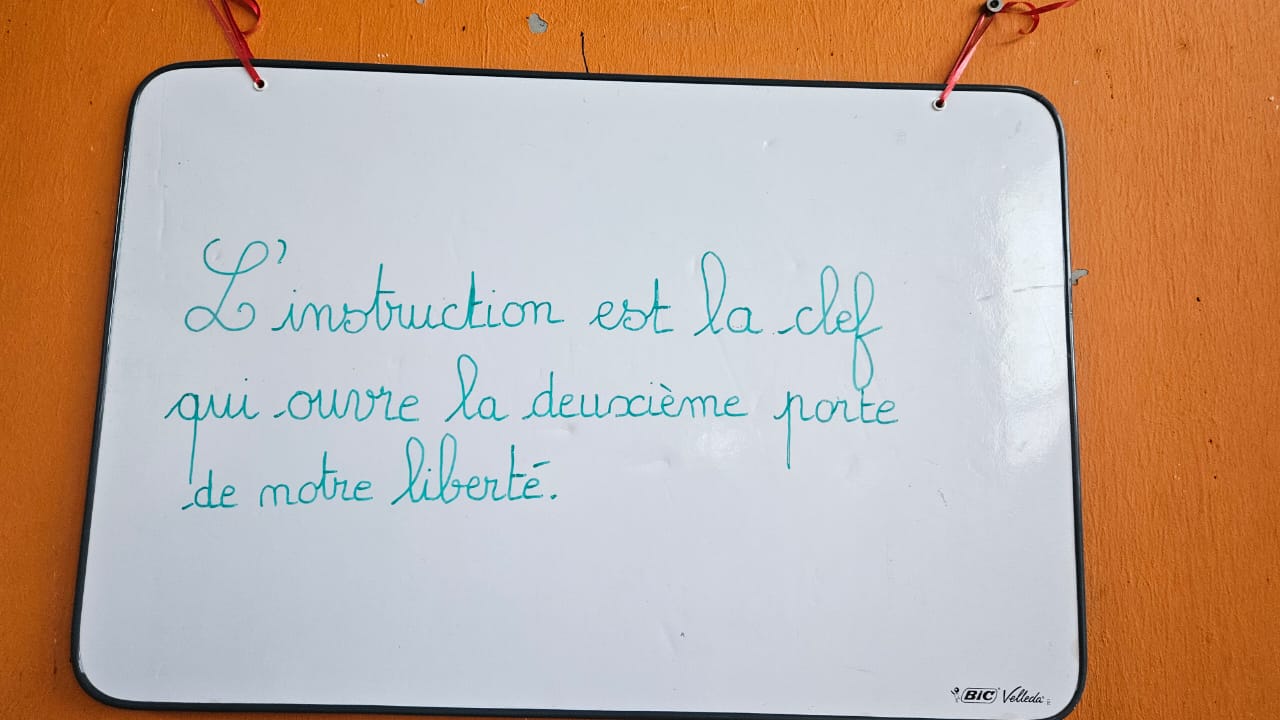 L'instruction est la clef
qui ouvre la deuxième porte
de notre liberté.
BIC Velleda